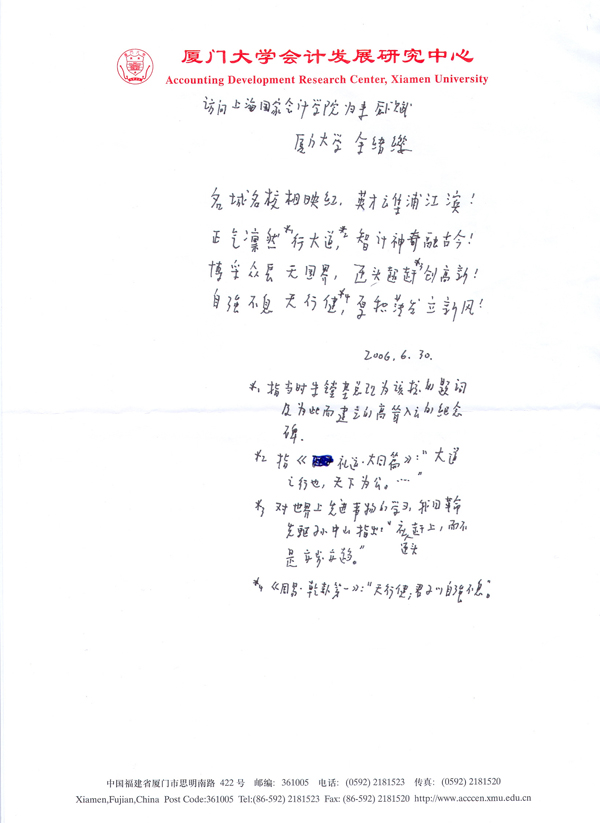 厦门大学会计发展研究中心
Accounting Development Research Center, Xiamen University
访问上海国家会计学院为来感赋
厦门大学 余绪缨
名城名校相映红，英才云集浦江滨！
正气凛然*1行大道*2，智计神奇融古今！
博采众长无国界，迎头赶*3创高新！
自强不息天行健*4，厚积薄发立新风！
2006.6.30.
*1 指当时朱镕基总理为该校的题词
及为此而建立的高耸入云的纪念
碑．
*2 指《礼运·大同篇》：“大道
之行也，天下为公。…”
*3 对世界上先进事物的学习，我国革命
先驱孙中山指出：“应迎头赶上，而不
是亦步亦趋。”
*4 《周易·乾卦第一》：“天行健，君子以自强不息”。
中国福建省厦门市思明南路 422 号 邮编：361005 电话：(0592) 2181523 传真：(0592) 2181520
Xiamen,Fujian,China Post Code:361005 Tel:(86-592) 2181523 Fax: (86-592) 2181520 http://www.acccen.xmu.edu.cn